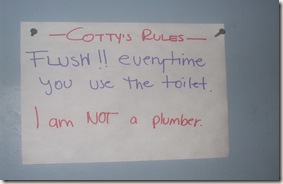 — COTTY'S RULES —
FLUSH!! everytime
you use the toilet.
I am NOT a plumber.